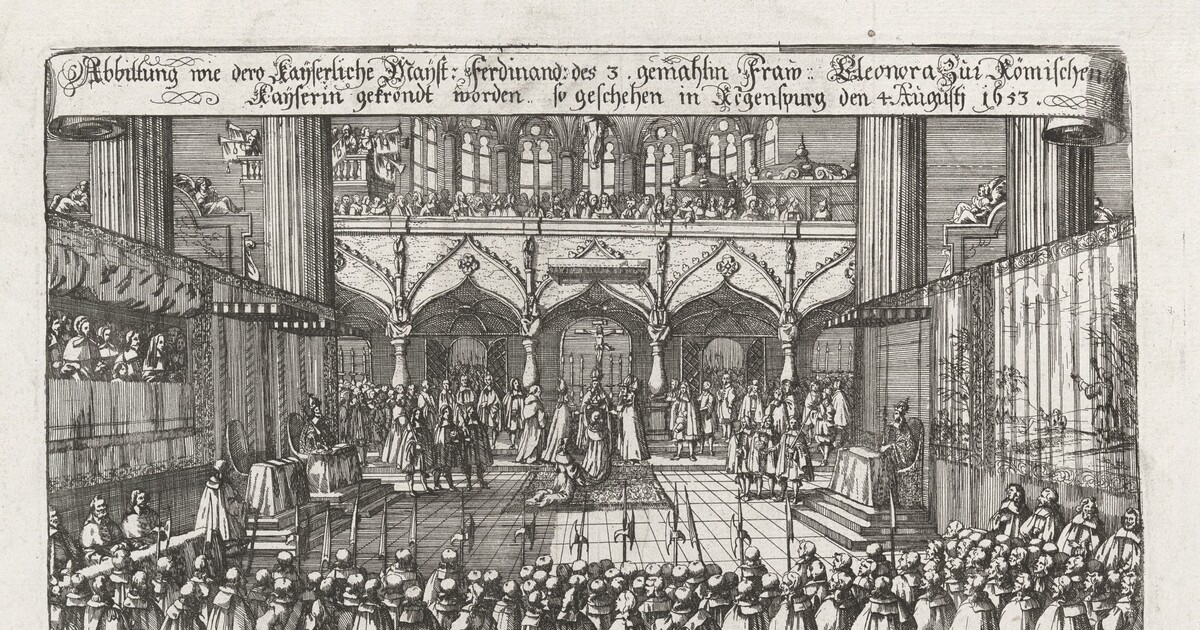 Abbiltung wie dero Kaÿserliche Maÿst: Ferdinand: des 3. gemahlin Fraw: Eleonora Zur Römischen
Kaÿserin gekröndt worden. so geschehen in Regenspurg den 4. Augustj 1653.